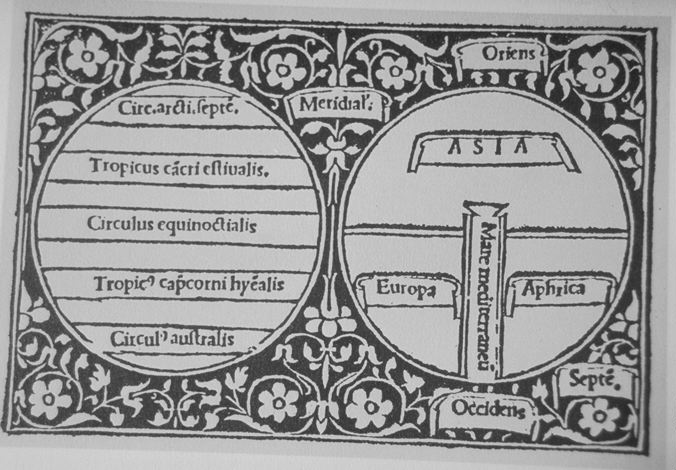 Circ. arcti. septē.
Tropicus cācri estiualis.
Circulus equinoctialis
Tropicꝰ cap̄corni hyēalis
Circulꝰ australis
Meridial'.
Oriens
ASIA
Mare mediterraneū
Europa
Aphrica
Septē.
Occidens